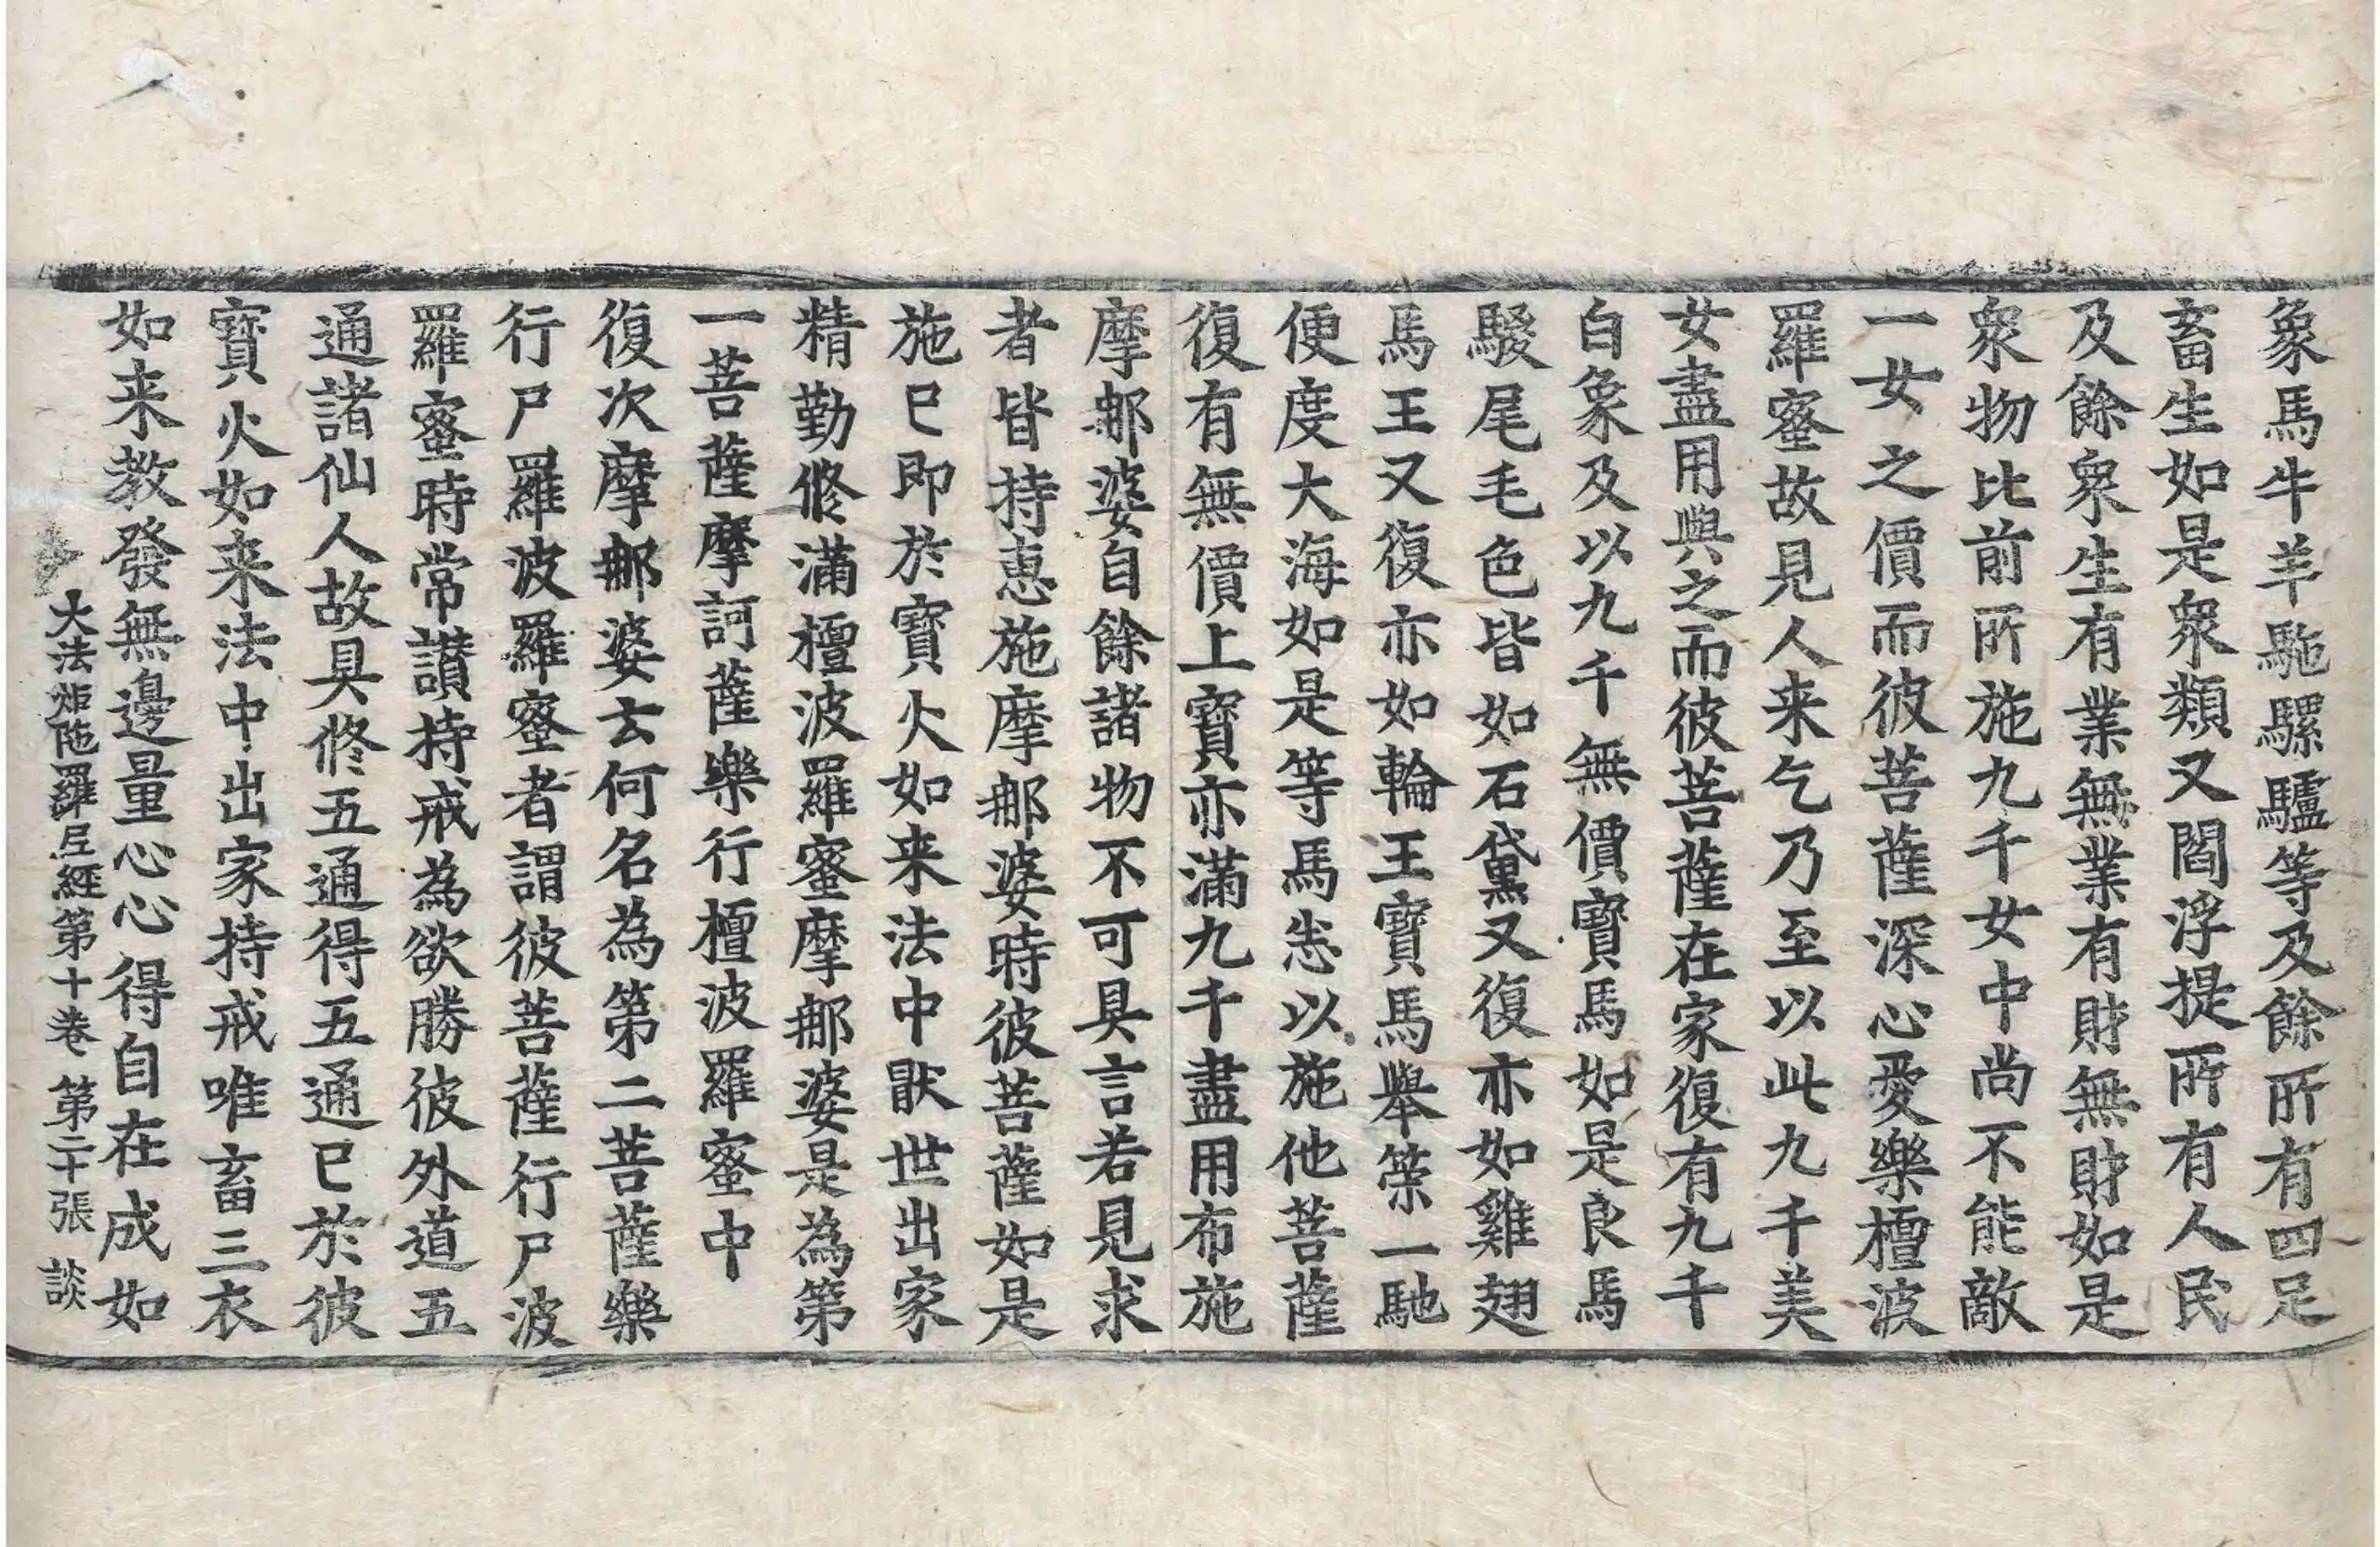 象馬牛羊駞騾驢等及餘所有四足
畜生如是衆類又閻浮提所有人民
及餘衆生有業無業有財無財如是
衆物比前所施九千女中尚不能敵
一女之價而彼菩薩深心愛樂檀波
羅蜜故見人来乞乃至以此九千美
女盡用與之而彼菩薩在家復有九千
白象及以九千無價寶馬如是良馬
騣尾毛色皆如石黛又復亦如雞翅
馬王又復亦如輪王寶馬舉䇿一馳
便度大海如是等馬悉以施他菩薩
復有無價上寶亦滿九千盡用布施
摩郍婆自餘諸物不可具言若見求
者皆持惠施摩郍婆時彼菩薩如是
施已即於寶火如来法中猒世出家
精勤修滿檀波羅蜜摩郍婆是為第
一菩薩摩訶薩樂行檀波羅蜜中
復次摩郍婆云何名為第二菩薩樂
行尸羅波羅蜜者謂彼菩薩行尸波
羅蜜時常讃持戒為欲勝彼外道五
通諸仙人故具修五通得五通已於彼
寶火如来法中出家持戒唯畜三衣
如来教發無邊量心心得自在成如
大法炬陁羅尼經第十卷 第二十張 談